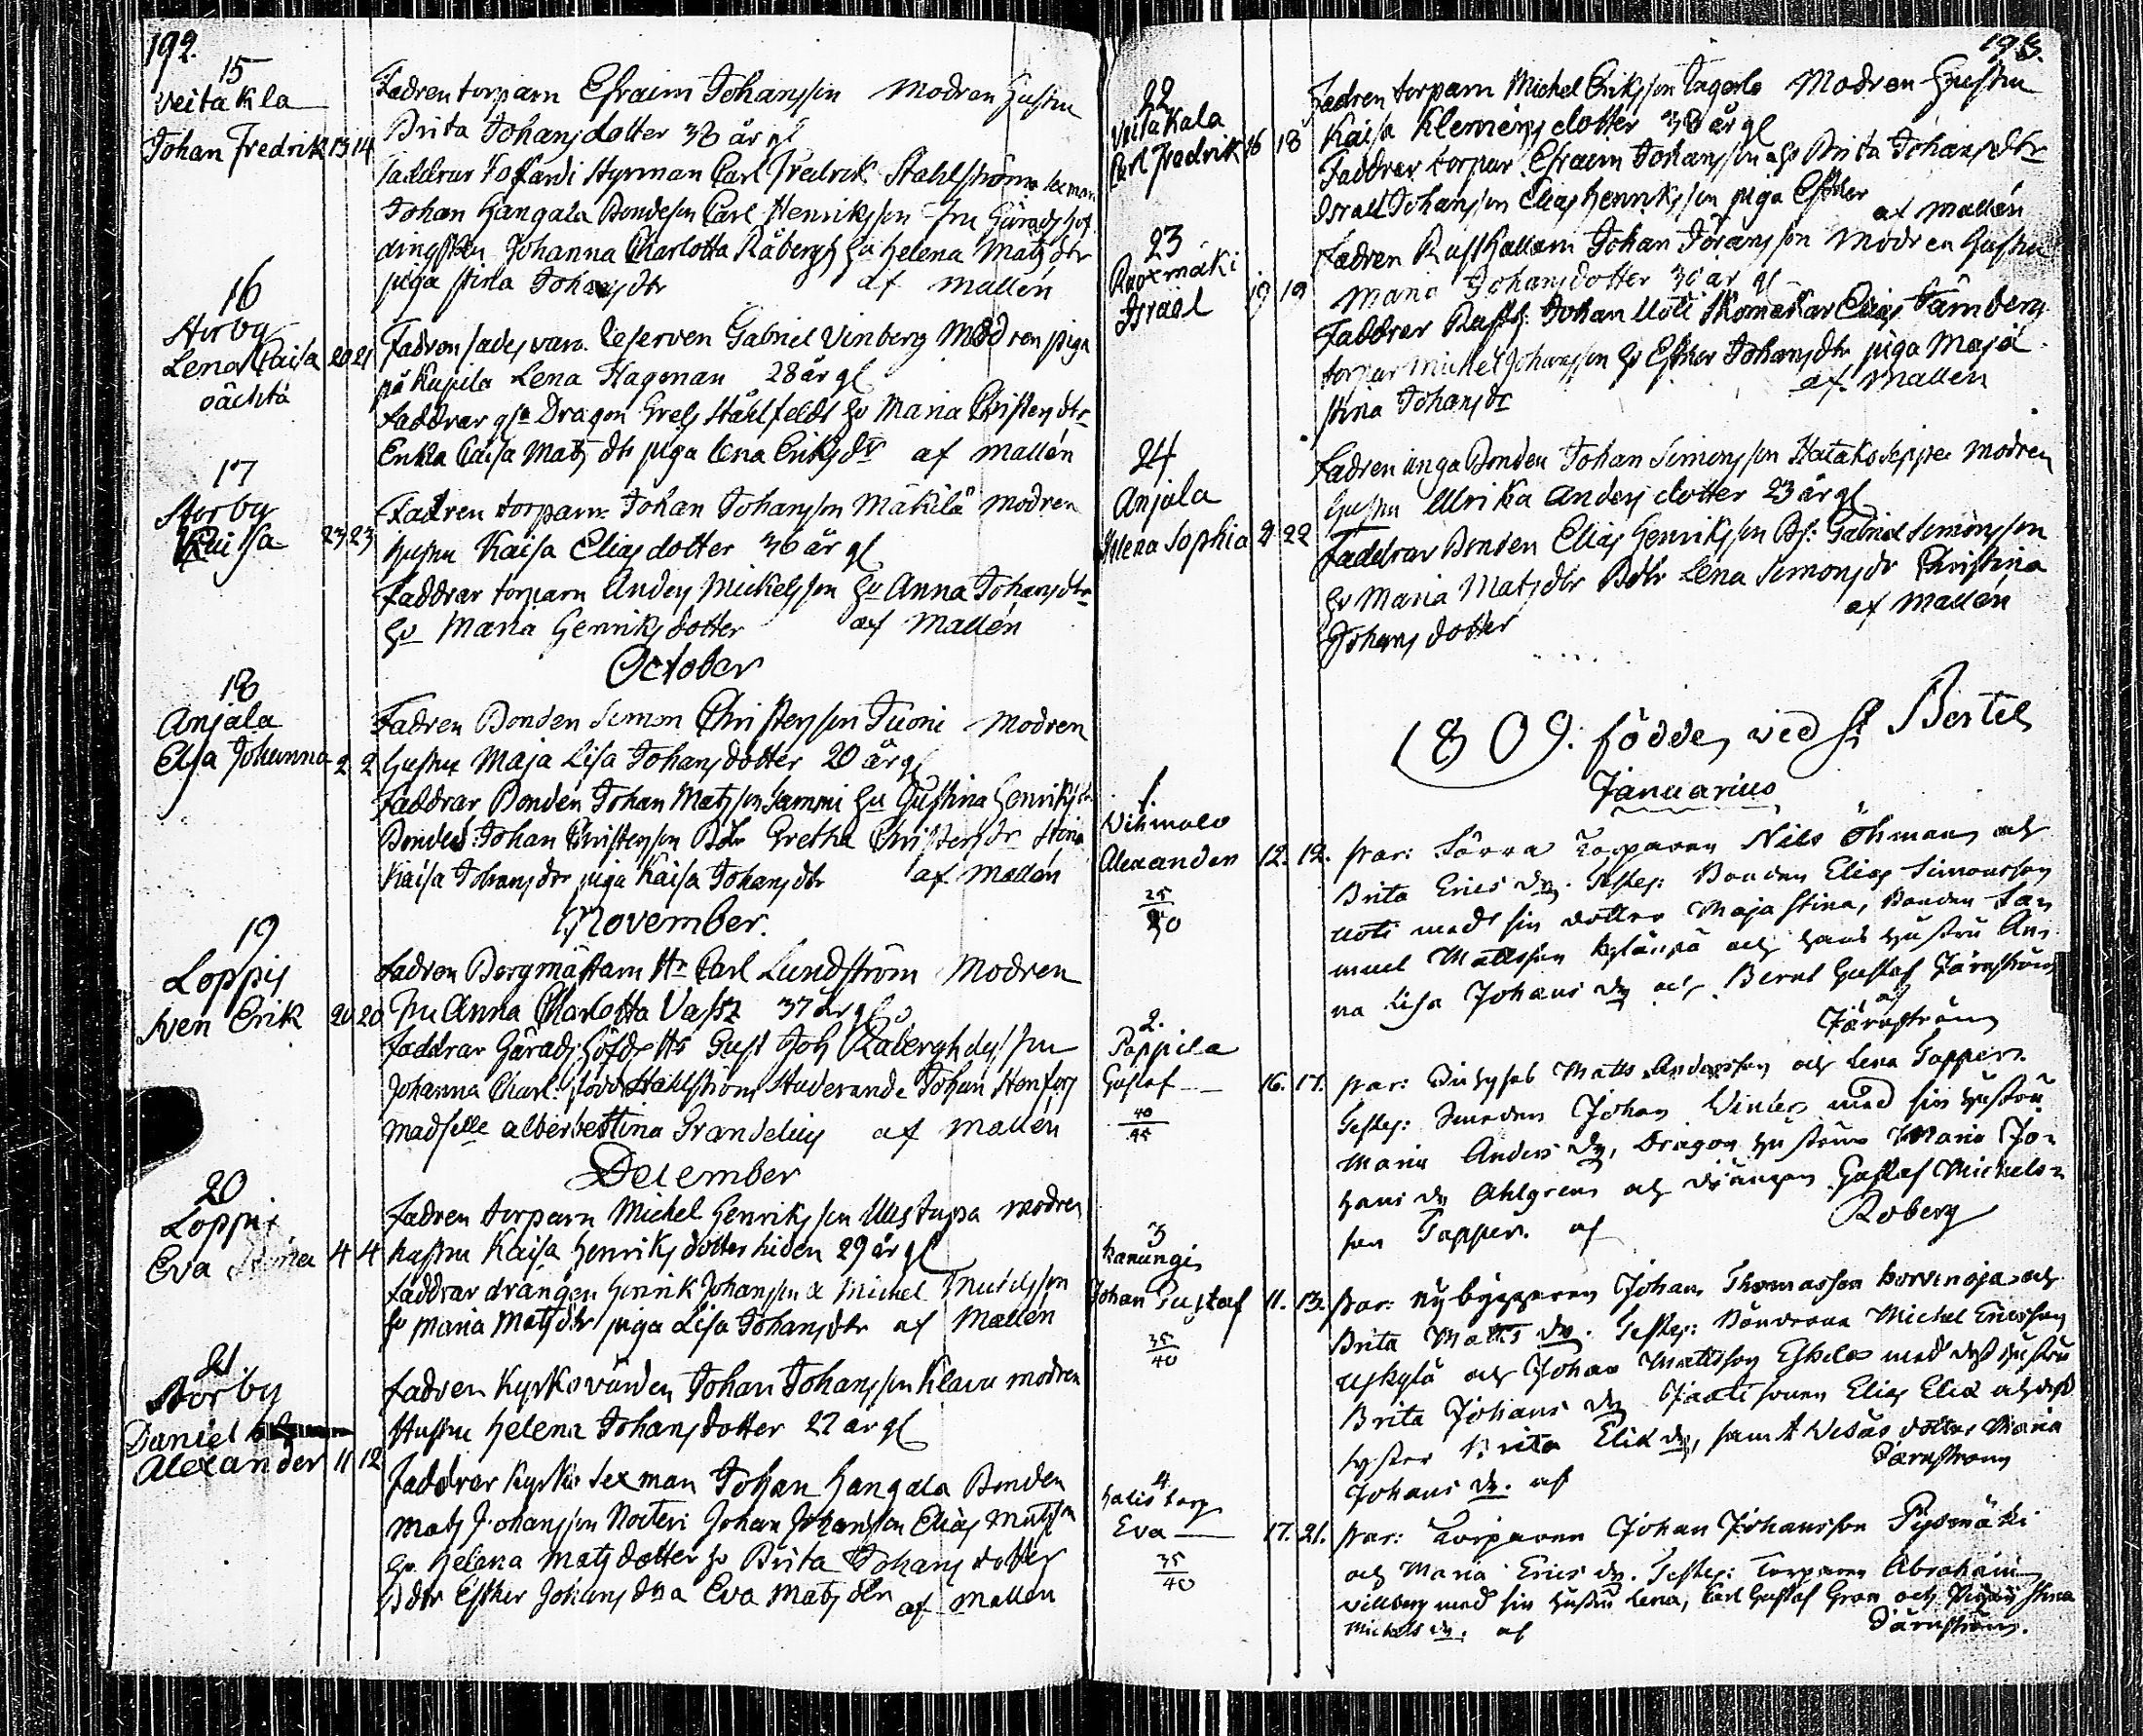 192.
15
Veitakla
Johan Fredrik 13 14
Fadren torparn Efraim Johansson Modren Hustru
Brita Johansdotter 38 år gl
faddrar Styrman Carl Fredrik Stahlström sexman
Johan Hangala Bondeson Carl Henriksson Fru Häradshöf
dingskan Johanna Charlotta Råbergh hu Helena Matsdtr
piga Stina Johansdtr af Mallén
16
Storby
Lena Caisa 20 21
oächta
Fadren sades vara Reserven Gabriel Vinberg Modren piga
på Kupila Lena Hageman 28 år gl
Faddrar Dragon Grels Ståhlfeldt hu Maria Christersdtr
Enkla Caisa Matsdtr piga Lena Eriksdtr af Mallén
17
Storby
Kaisa 23 23
Fadren torparn Johan Johansson Mäkilä Modren
hustru Kaisa Eliasdotter 36 år gl
Faddrar torparn Anders Mickelsson hu Anna Johansdtr
hu Maria Henriksdotter af Mallén
October
18
Anjala
Elsa Johanna 2 2
Fadren Bonden Simon Christersson Tuoni Modren
Hustru Maja Lisa Johansdotter 20 år gl
Faddrar Bonden Johan Matsson Sammi hu Justina Henriksdtr
Bondes: Johan Christersson Bdtr Gretha Christersdr Stina
Kaisa Johansdtr piga Kaisa Johansdtr af Mallén
November.
19
Loppis
Sven Erik 20 20
Fadren Bergmästarn Hr Carl Lundström Modren
Fru Anna Charlotta Vassz 37 år gl
Faddrar Häradshöfd Hr Gust Joh Råbergh dess fru
Johanna Charl: Ståhlström Studerande Johan Stenfors
Madselle Albertina Grandelius af Mallén
December
20
Loppis
Eva Stina 4 4
Fadren torparn Michel Henriksson Uustupa modren
hustru Kaisa Henriksdotter hiden 29 år gl
faddrar drängen Henrik Johansson & Michel
hu Maria Matsdtr piga Lisa Johansdtr af Mallén
21.
Storby
Daniel
Alexander 11 12
fadren Kyrkovärden Johan Johansson Klavu modren
Hustru Helena Johansdotter 22 år gl
Faddrar Kyrko Sexman Johan Hangala Bonden
Mats Johansson Noiteri Johan Johansson Elias Matsson
hu Helena Matsdotter hu Brita Johansdotter
Bdtr Esther Johansdtr Eva Matsdtr af Mallén
193.
22
Veitakala
Carl Fredrik 16 18
Fadren torparn Michel Eriksson Ingerla Modren Hustru
Kaisa Klemensdotter 38 år gl
Faddrar torpar Efraim Johansson Brita Johansdtr
Israel Johansson Elias Henriksson piga Esther
af Mallén
23
Israel 19 19
Fadren Rusthållarn Johan Jöransson Modren Hustru
Maria Johansdotter 36 år gl
Faddrar Rusth: Johan Uoti Skomakar Elias Tärnberg
torpar Michel Johansson hu Esther Johansdtr piga Maja
Stina Johansdr af Mallén
24
Anjala
Helena Sophia 21 22
Fadren unga Bonden Johan Simonsson Hatakoseppee modren
hustru Ulrika Andersdotter 23 år gl
Faddrar Bonden Elias Henriksson Bs: Gabriel Simonsson
hu Maria Matsdtr Bdtr Lena Simonsdr Christina
Johansdotter af Mallén
1809. födde, vid St Bertels
Januarius
1.
Vihmalo
Alexander 12. 12.
25
30
Par: Torparen Nils Öhman och
Brita Erics dr. Testes: Bonden Elias Simonsson
Uoti med sin dotter Maja Stina, Bonden Sa=
muel Mattsson och hans hustru An=
na Lisa Johans dr och Bernt Gustaf Järnström
af
Järnström
2.
Pappila
Gustaf 16. 17.
40
45
Par: Matts Andersson och Lena Tapper.
Testes: Smeden Johan Winter med sin hustru
Maria Anders dr, Dragon hustrun Maria Jo=
hans dr Ahlgren och drängen Gustaf Michels=
son Tapper. af Roberg
3
Kanungi
Johan Gustaf 11. 13.
35
40
Par: Nybyggaren Johan Thomasson Korvenoja och
Brita Matts dr. Testes: Bönderna Michel Ericsson
Uskylä och Johan Mattsson Eskola med dess hustru
Brita Johans dr Elias Elia och dess
syster Brita Elia dr, samt dotter Maria
Johans dr. af Järnström
4
Kalistorp
Eva 17. 21.
35
40
Par: Torparen Johan Johansson Pysmäki
och Maria Erics dr. Testes: Torparen Abraham
Villberg med sin hustru Lena, Carl Gustaf Gran och Pigan Stina
Michels dr. af Järnström.